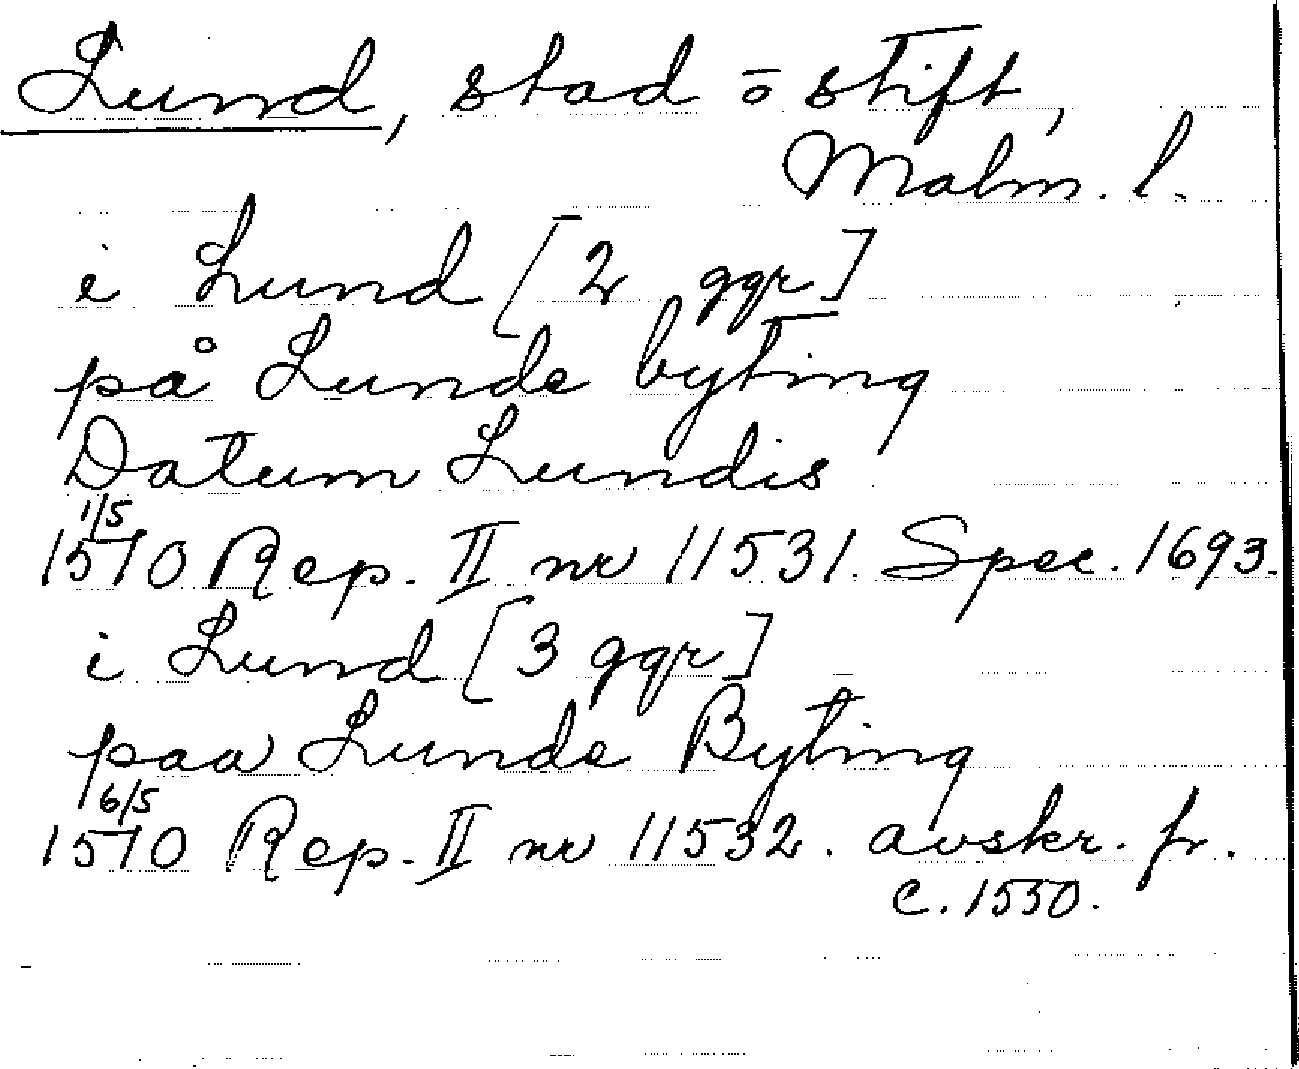 Lund, stad o stift,
Malm. l.
i Lund [2 ggr]
på Lunde byting
Datum Lundis
1/5
1510 Rep. II nr 11531. Spec. 1693.
i Lund [3 ggr]
paa Lunde Byting
6/5
1510 Rep. II nr 11532. avskr. fr.
c. 1550.